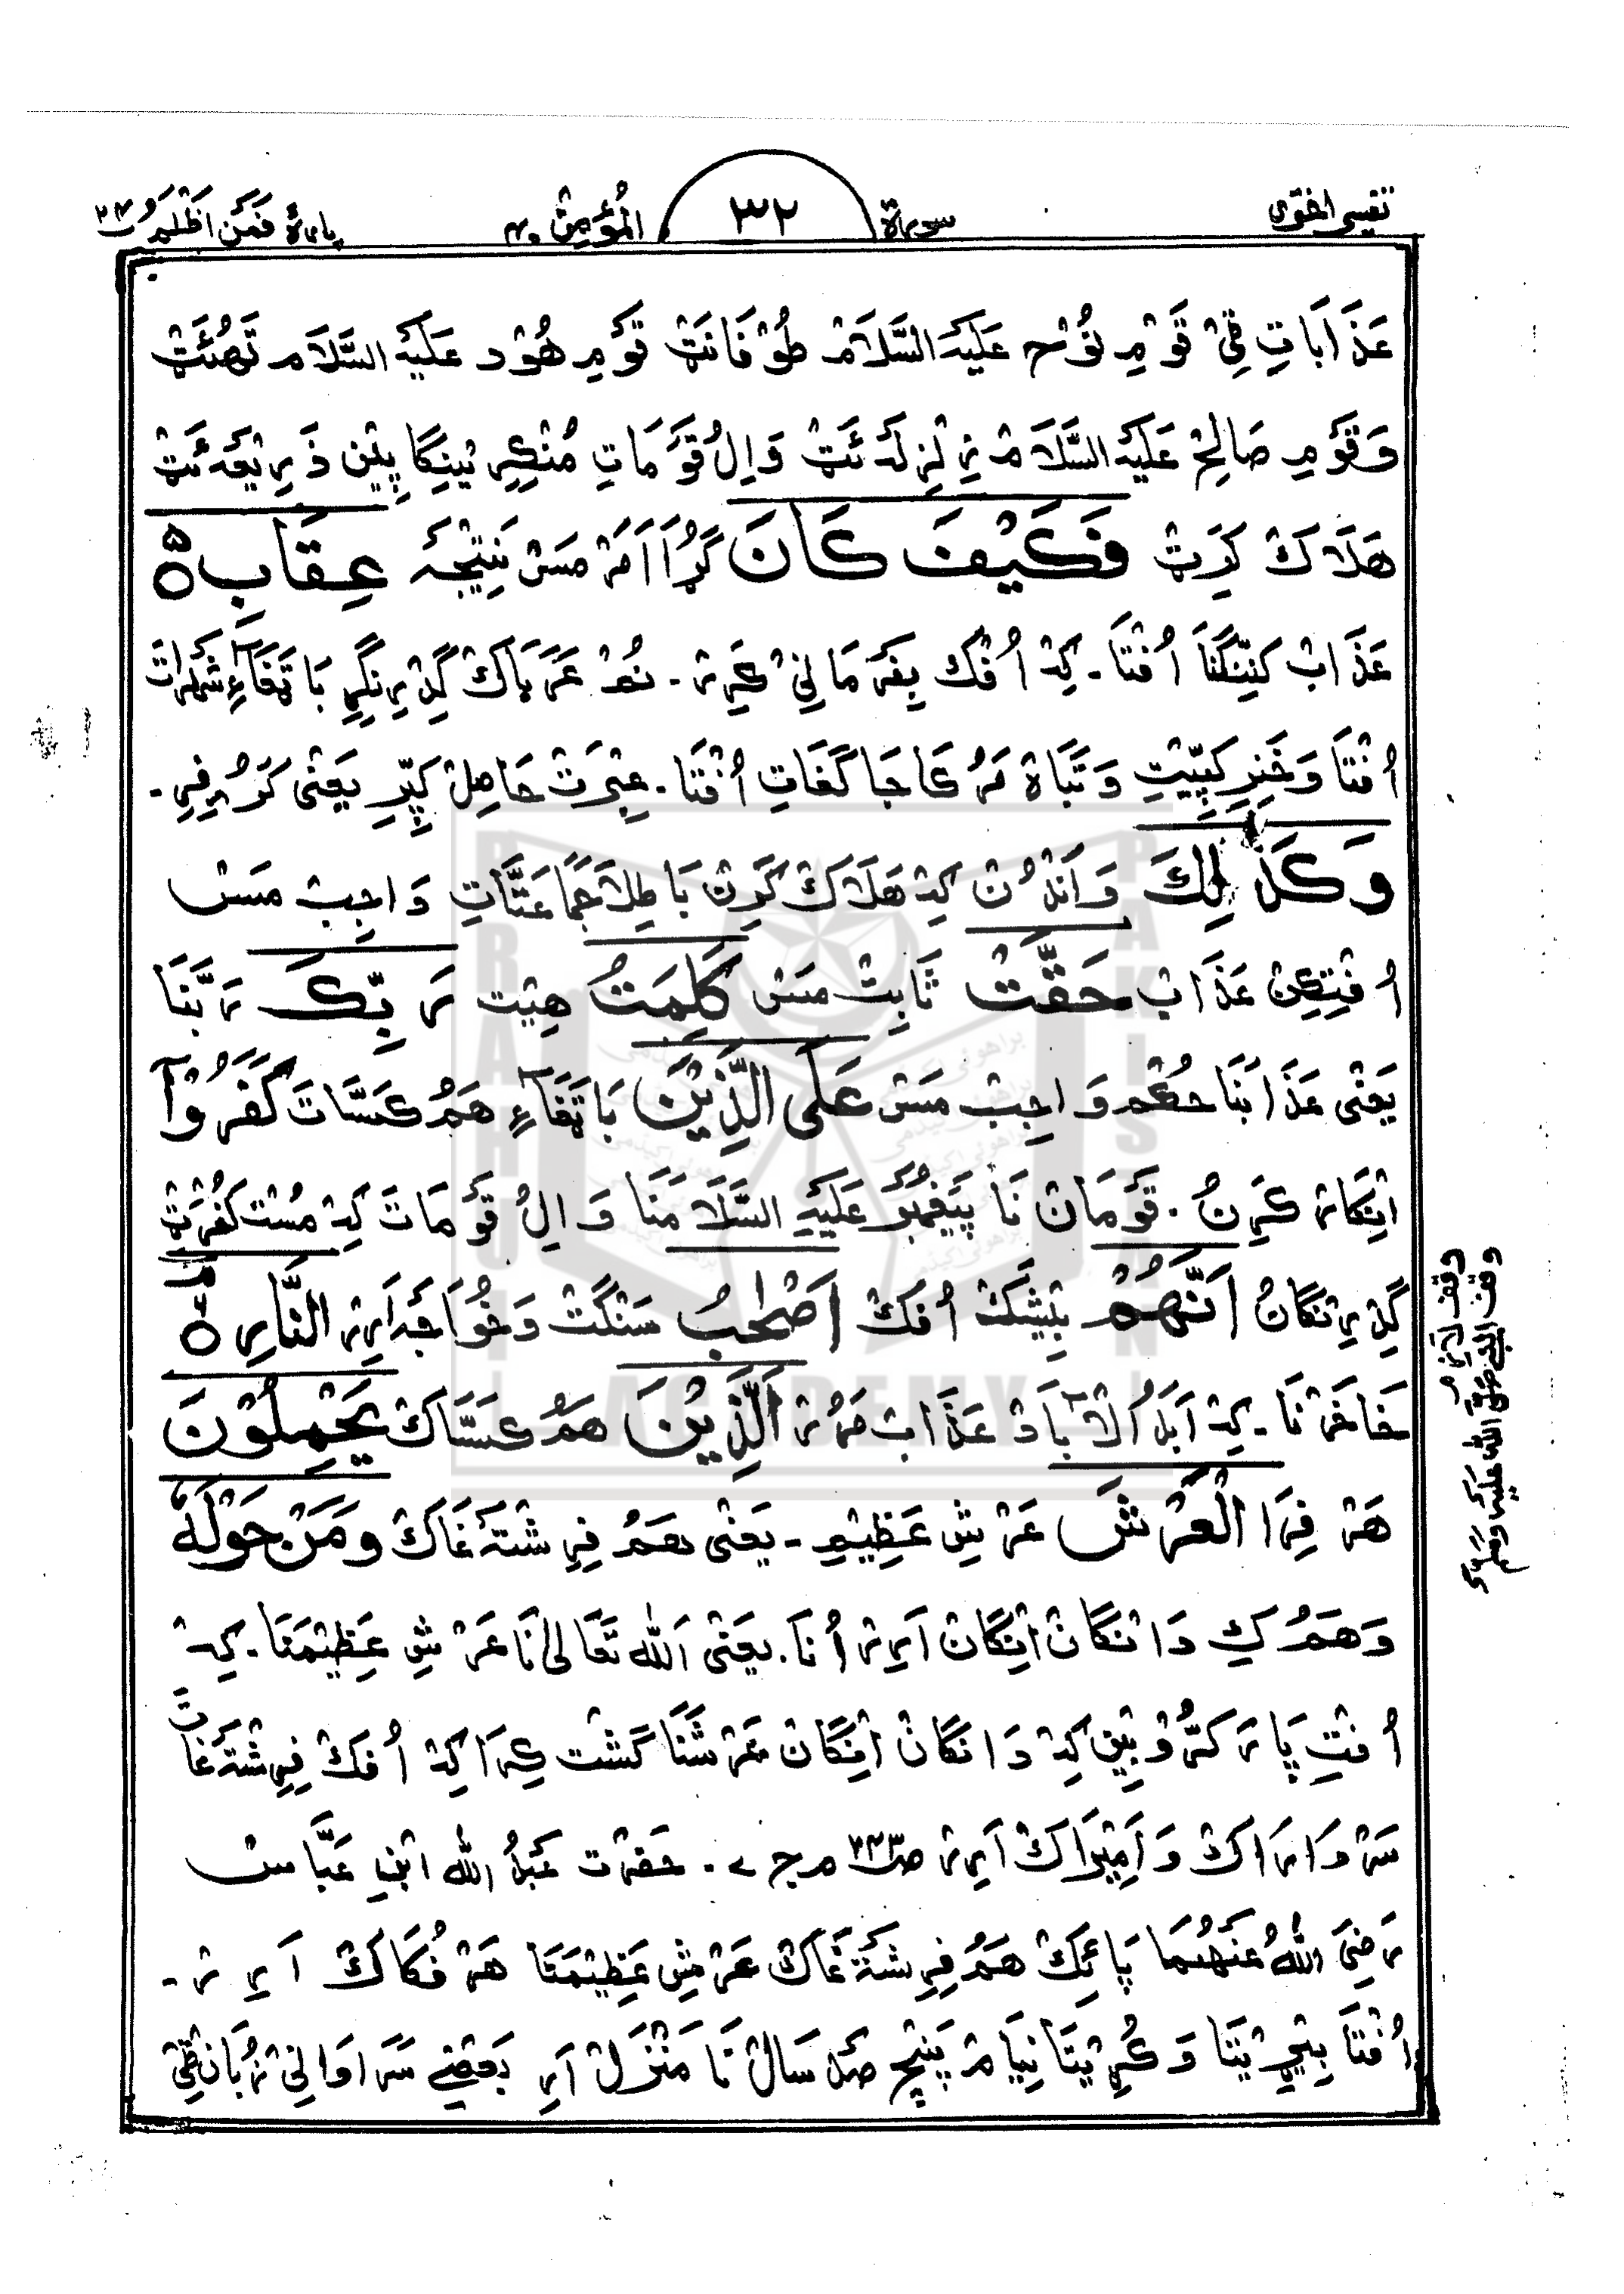 تفسیر اخقوی سورة ٣٢ المؤمن ٤٠ پارہ فمن اظلم ٢٤
عَذَابَاتِ ٹی قَوْمِ نُوْح عَلَیْہِ السَّلَامْ طُوْفَانَٹ قَوْمِ ھُوْد عَلَیْہِ السَّلَام تَھُئَٹ
وَقَوْمِ صَالِحْ عَلَیْہِ السَّلَامْ زِلْزِلَہ ئَٹ وَاِلُ قَوْمَاتِ مُنْکِرِ پِیْن ذَرِیْعَہ ئَٹ
ھَلَاکْ کَرِٹ فَكَيْفَ كَانَ گُڑَا اَمَرْ مَسْ نَتِیْجَہ عِقَابِ ٥
عَذَابْ کَنِنَّگنَا اُفْتَا۔ کِہْ اُفْکْ بِفَرمَانِیْ کَرِرْ۔ نُمْ عَرَبَاکْ گِدْرِنگِرِ بَاتَھَاءِ شَہْرَاتَ
اُفْتَا وَخَنِرِ کِبِّیْتِ وَتَبَاہ مَرُعَا جَاگَغَاتِ اُفْتَا۔ عِبْرَتْ حَاصِلْ کِبِّرِ یَعْنٰی کَرُرِفِرِ۔
وَكَذٰلِكَ وَاَنْدُنْ کِہْ ھَلَاکْ کَرِنْ بَاطِلَا جَمَاعَتَّاتِ وَاجِبْ مَسْ
اُفْتِکِنْ عَذَابْ حَقَّتْ ثَابِتْ مَسْ كَلِمَتُ ھِیْت رَبِّكَ رَبَّنَا
یَعْنٰی عَذَابَنَا حُکْم وَاجِبْ مَسْ عَلَى الَّذِيْنَ بَاتَھَاءِ ھَمُ کَسَّاتَ كَفَرُوْٓا
اِنْکَارْ کَرِنُ۔ قَوْمَانْ نَا پَیْغَمْبَرُ عَلَیْہِ السَّلَامَنَا وَاِلُ قَوْمَاتَ کِہْ مُسْتْ کُفْرَٹْ
گِدْرِنْگَانُ اَنَّهُمْ بِیْشَکْ اُفَکْ اَصْحٰبُ سَنْگَتْ وَخُوَاجَہ اَرِرْ النَّارِ ٥
خَاخَرْنَا۔ کِہْ اَبَدُالْآبَادْ عَذَابْ مَرُرْ اَلَّذِيْنَ ھَمُ کَسَّاکْ يَحْمِلُوْنَ
ھَرْفِرَا الْعَرْشَ عَرْشِ عَظِیْمِ۔ یَعْنٰی ھَمُ فِرِشْتَہ غَاکْ وَمَنْ حَوْلَهٗ
وَھَمُرکِ دَانْگَانْ اِنْگَانْ اَرِرْ اُنَا۔ یَعْنٰی اَللّٰہ تَعَالٰی نَا عَرْشِ عَظِیْمَنَا۔ کِہْ
اُفْتِ پَارَ کَرُّوْبِیْن کِہْ دَانْگَانْ اِنْگَانْ عَرْشَنَا گَشْت کِرَا کِہْ اُفَکْ فِرِشْتَہ غَاتَ
سَرْدَارَاکْ وَاَمِیْرَاکْ اَرِرْ ص ٣٢٣ ج ٧۔ حَضْرَت عَبْدُ اللّٰہ اِبْنِ عَبَّاسْ
رَضِیَ اللّٰہُ عَنْہُمَا پَائِکْ ھَمُ فِرِشْتَہ غَاکْ عَرْشِ عَظِیْمَنَا ھَرْفُکَاکْ اَرِرْ۔
اُفْتَا بِیْتِیْنَا وَکُرِیْتَا نِیَامْ پَنْچْ صَدْ سَالْ نَا مَنْزَلْ اَرِ بَعْضے سَرَاوَانِیْ زُبَانْ ٹی
وقف لازم
وقف النبی صلی اللہ علیہ وسلم
BRAHUI ACADEMY PAKISTAN
براهوئی اکیڈمی